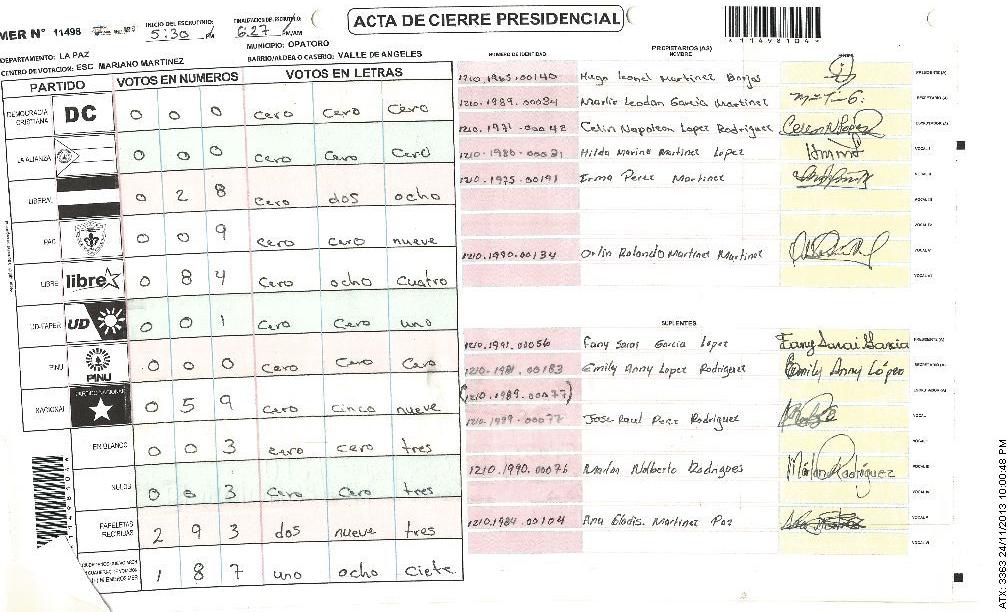 ACTA DE CIERRE PRESIDENCIAL
MER N° 11498
INICIO DEL ESCRUTINIO: 5:30 PM
FINALIZACIÓN DEL ESCRUTINIO: 6:27 PM/AM
*11498104*
DEPARTAMENTO: LA PAZ
MUNICIPIO: OPATORO
CENTRO DE VOTACION: ESC MARIANO MARTINEZ
BARRIO/ALDEA O CASERIO: VALLE DE ANGELES
PARTIDO VOTOS EN NUMEROS VOTOS EN LETRAS
DEMOCRACIA CRISTIANA DC 0 0 0 cero Cero Cero
LA ALIANZA 0 0 0 cero Cero Cero
LIBERAL 0 2 8 cero dos ocho
PAC 0 0 9 cero cero nueve
LIBRE libre 0 8 4 cero ocho cuatro
UD-FAPER UD 0 0 1 cero Cero uno
PINU PINU 0 0 0 cero Cero Cero
NACIONAL PARTIDO NACIONAL 0 5 9 cero Cinco nueve
EN BLANCO 0 0 3 cero cero tres
NULOS 0 0 3 Cero Cero tres
PAPELETAS RECIBIDAS 2 9 3 dos nueve tres
1 8 7 uno ocho Ciete
*11498104*
NUMERO DE IDENTIDAD PROPIETARIOS (AS) NOMBRE FIRMA
1210.1965.00140 Hugo Leonel Martinez Borjas PRESIDENTE(A)
1210.1989.00034 Marlir Leodan Garcia Martinez SECRETARIO(A)
1210.1971.00042 Celin Napoleon Lopez Rodriguez ESCRUTADOR(A)
1210.1980.00031 Hilda Marina Martinez Lopez VOCAL I
1210.1975.00191 Erma Perez Martinez VOCAL II
VOCAL III
VOCAL IV
1210.1990.00134 Orlin Rolando Martinez Martinez VOCAL V
VOCAL VI
SUPLENTES
1210.1991.00056 Fany Sarai Garcia Lopez Fany Sarai Garcia PRESIDENTE(A)
1210.1981.00183 Emily Anny Lopez Rodriguez Emily Anny López SECRETARIO(A)
(1210.1989.00077) ESCRUTADOR(A)
1210.1989.00077 Jose Raul Perez Rodriguez VOCAL I
VOCAL II
1210.1990.00076 Marlon Nolberto Rodriguez Marlon Rodríguez VOCAL III
VOCAL IV
1210.1984.00104 Ana Gladis Martinez Paz VOCAL V
VOCAL VI
ATX: 3363 24/11/2013 10:00:48 PM